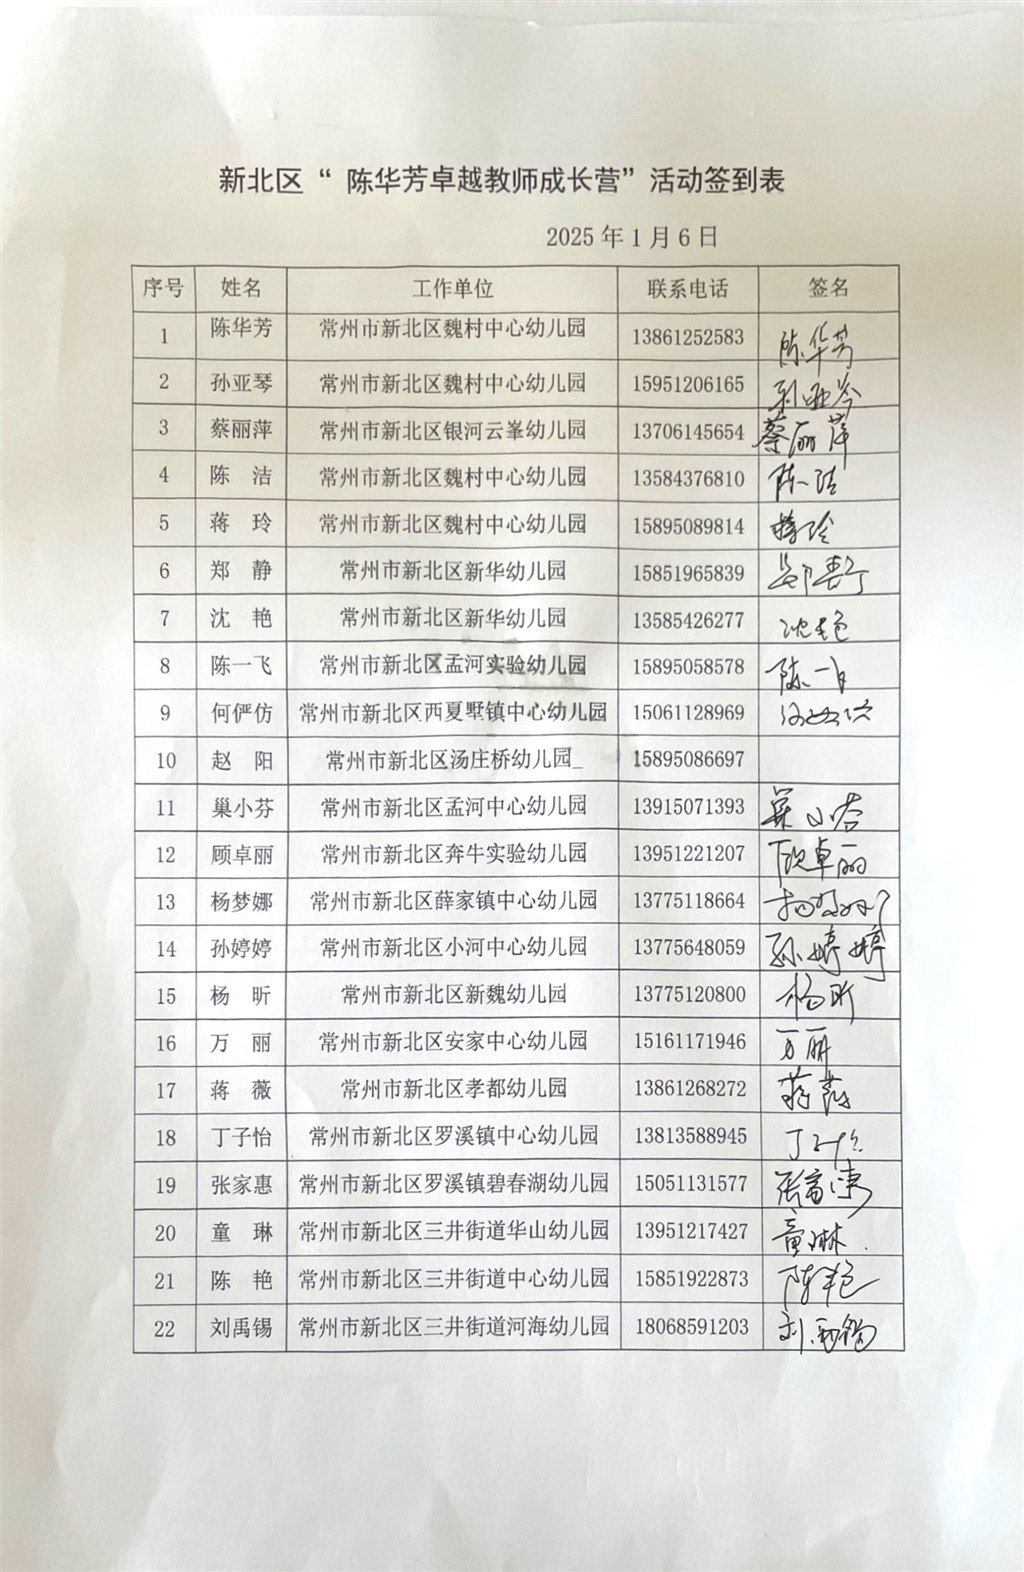 新北区“ 陈华芳卓越教师成长营”活动签到表
2025 年 1 月 6 日
序号 姓名 工作单位 联系电话 签名
1 陈华芳 常州市新北区魏村中心幼儿园 13861252583 陈华芳
2 孙亚琴 常州市新北区魏村中心幼儿园 15951206165 孙亚琴
3 蔡丽萍 常州市新北区银河云峯幼儿园 13706145654 蔡丽萍
4 陈 洁 常州市新北区魏村中心幼儿园 13584376810 陈洁
5 蒋 玲 常州市新北区魏村中心幼儿园 15895089814 蒋玲
6 郑 静 常州市新北区新华幼儿园 15851965839 郑静
7 沈 艳 常州市新北区新华幼儿园 13585426277 沈艳
8 陈一飞 常州市新北区孟河实验幼儿园 15895058578 陈一飞
9 何俨仿 常州市新北区西夏墅镇中心幼儿园 15061128969
10 赵 阳 常州市新北区汤庄桥幼儿园_ 15895086697
11 巢小芬 常州市新北区孟河中心幼儿园 13915071393 巢小芬
12 顾卓丽 常州市新北区奔牛实验幼儿园 13951221207 顾卓丽
13 杨梦娜 常州市新北区薛家镇中心幼儿园 13775118664 杨梦娜
14 孙婷婷 常州市新北区小河中心幼儿园 13775648059 孙婷婷
15 杨 昕 常州市新北区新魏幼儿园 13775120800 杨昕
16 万 丽 常州市新北区安家中心幼儿园 15161171946 万丽
17 蒋 薇 常州市新北区孝都幼儿园 13861268272 蒋薇
18 丁子怡 常州市新北区罗溪镇中心幼儿园 13813588945 丁子怡
19 张家惠 常州市新北区罗溪镇碧春湖幼儿园 15051131577 张家惠
20 童 琳 常州市新北区三井街道华山幼儿园 13951217427 童琳
21 陈 艳 常州市新北区三井街道中心幼儿园 15851922873 陈艳
22 刘禹锡 常州市新北区三井街道河海幼儿园 18068591203 刘禹锡